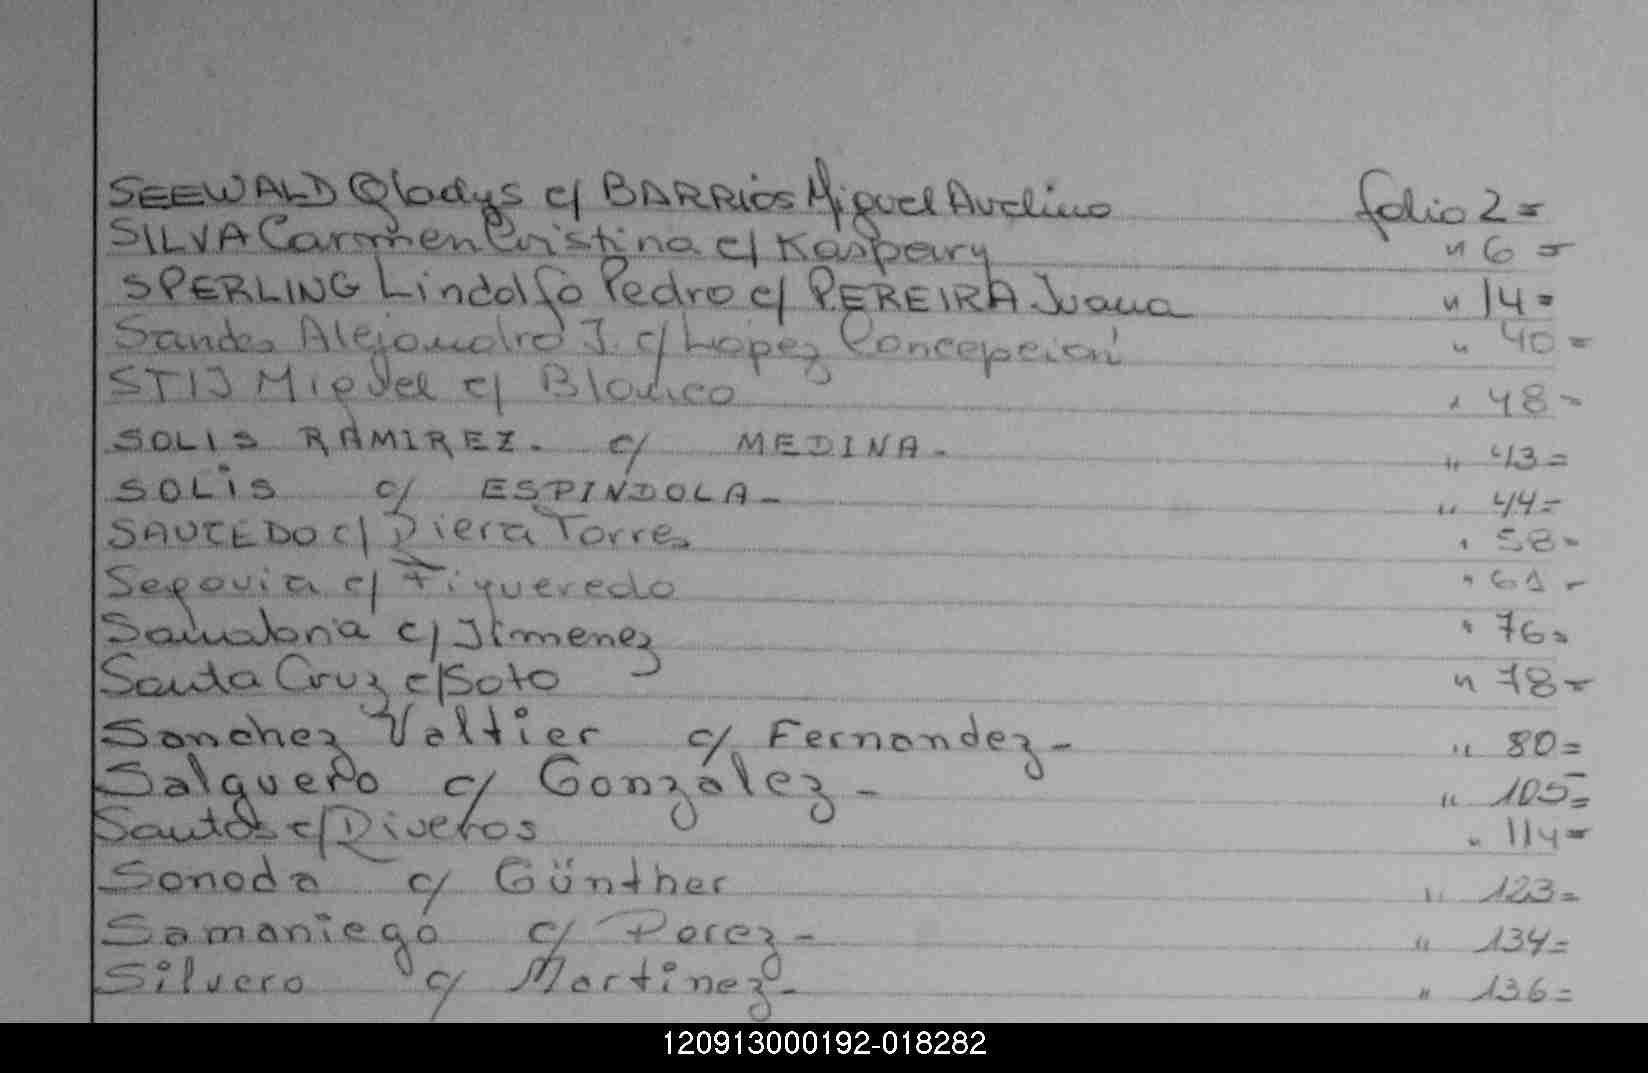 SEEWALD Gladys c/ BARRIOS Miguel Avelino folio 2=
SILVA Carmen Cristina c/ Kaspary " 6=
SPERLING Lindolfo Pedro c/ PEREIRA Juana " 14=
Sander Alejandro J. c/ Lopez Concepcion " 40=
STIJ Miguel c/ Blanco " 48=
SOLIS RAMIREZ. c/ MEDINA. " 43=
SOLIS c/ ESPINDOLA- " 44=
SAUCEDO c/ Riera Torres " 58=
Segovia c/ Figueredo " 61-
Sanabria c/ Jimenez " 76=
Santa Cruz c/ Soto " 78=
Sanchez Valtier c/ Fernandez- " 80=
Salgueño c/ González- " 105=
Santos c/ Riveros " 114=
Sonoda c/ Günther " 123=
Samaniego c/ Perez- " 134=
Silvero c/ Martinez- " 136=
120913000192-018282